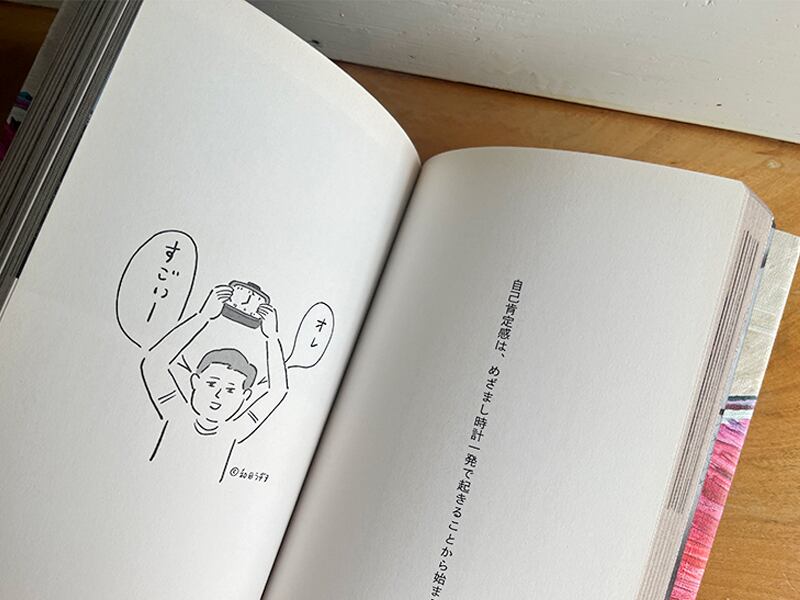 自己肯定感は、めざまし時計一発で起きることから始ま
オレ
すごいー
©和田ラヂヲ